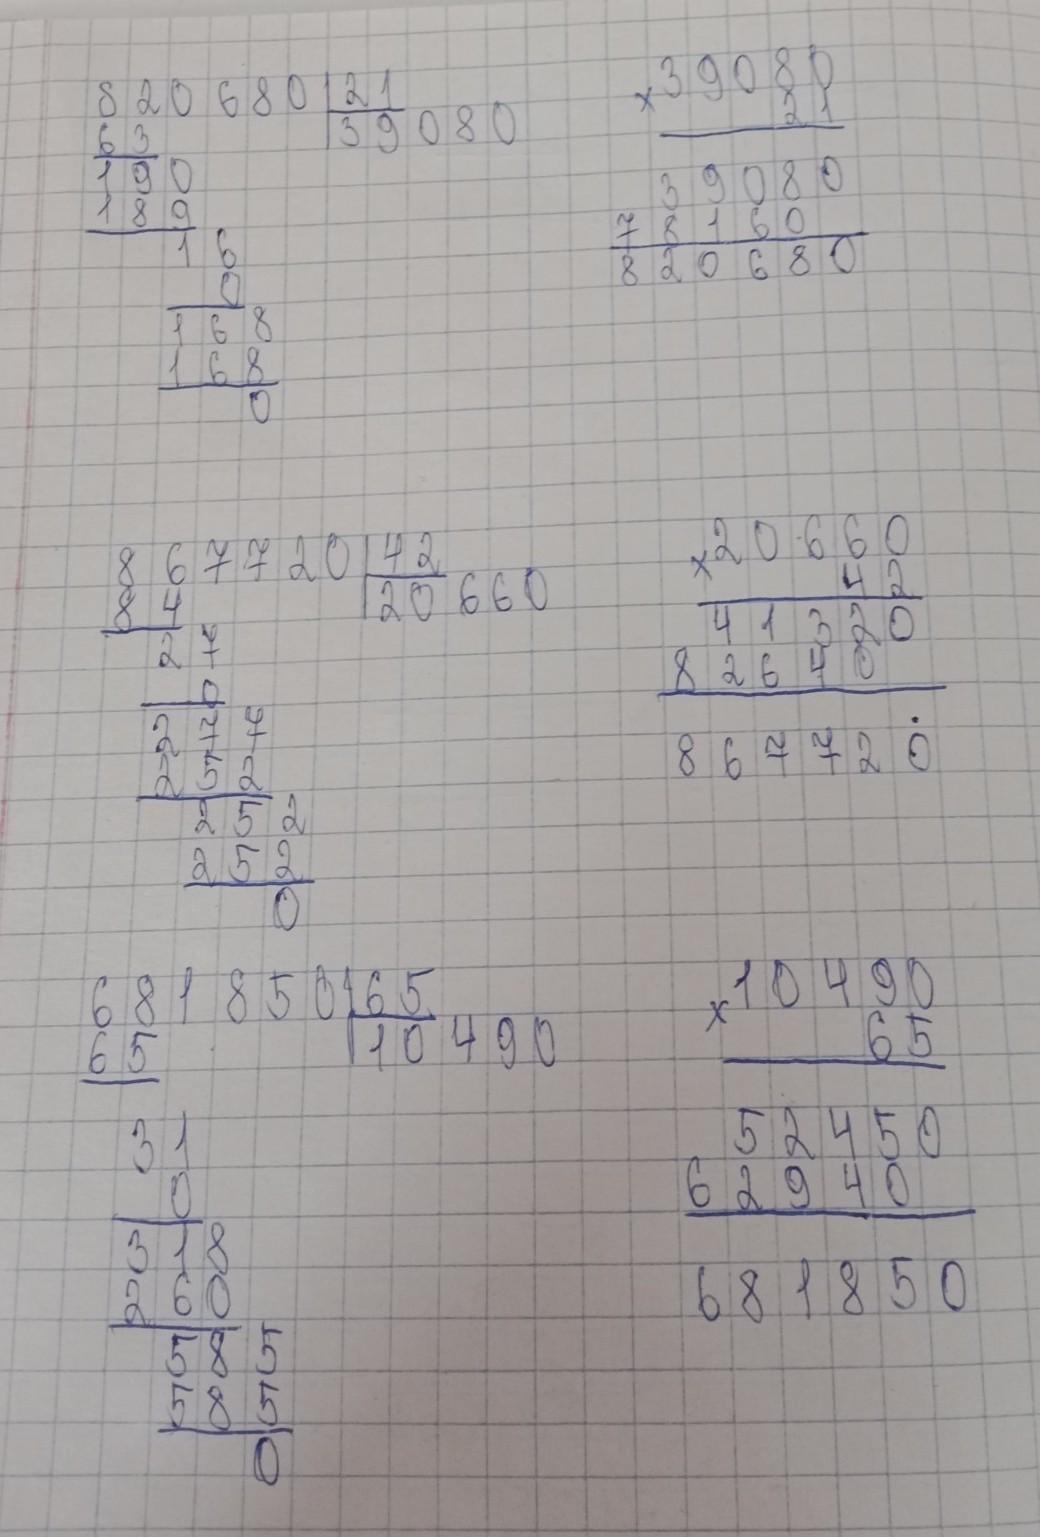 820680 21
63 39080
190
189
16
0
168
168
0
×39080
21
39080
78160
820680
867720 42
84 20660
27
0
277
252
252
252
0
×20660
42
41320
82640
867720
681850 65
65 10490
31
0
318
260
585
585
0
×10490
65
52450
62940
681850